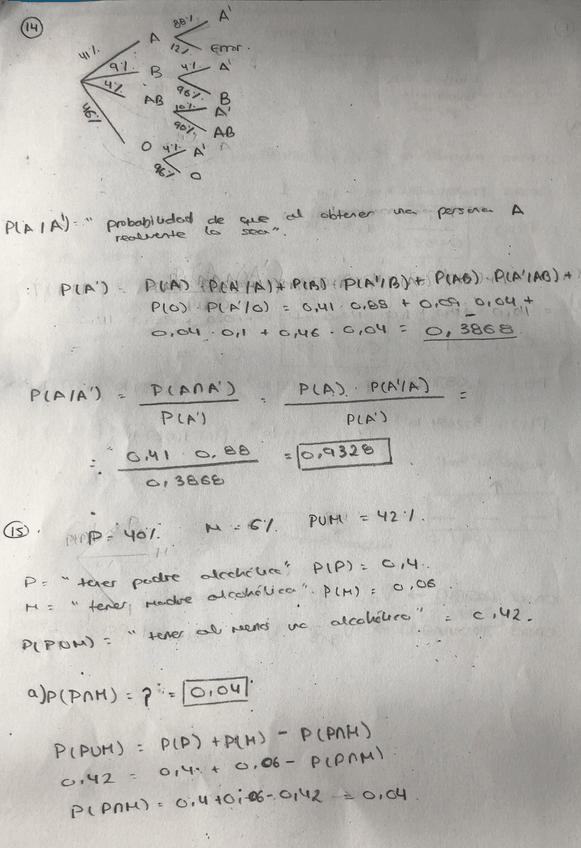 14
41% A 88% A'
12% Error.
9% B 4% A'
96% B
4% AB 10% A'
90% AB
46% O 4% A'
96% O
P(A/A') = "probabilidad de que al obtener una persona A
realmente lo sea".
P(A') = P(A) · P(A'/A) + P(B) · P(A'/B) + P(AB) · P(A'/AB) +
P(O) · P(A'/O) = 0,41 · 0,88 + 0,09 · 0,04 +
0,04 · 0,1 + 0,46 · 0,04 = 0,3868
P(A/A') = P(A∩A') / P(A') = P(A) · P(A'/A) / P(A') =
= 0,41 · 0,88 / 0,3868 = 0,9328
15 P = 40% M = 6% PUM = 42%
P = "tener padre alcohólico" P(P) = 0,4
M = "tener madre alcohólica" P(M) = 0,06
P(PUM) = "tener al menos un alcohólico" = 0,42.
a) P(P∩M) = ? = 0,04
P(PUM) = P(P) + P(M) - P(P∩M)
0,42 = 0,4 + 0,06 - P(P∩M)
P(P∩M) = 0,4+0,06-0,42 = 0,04